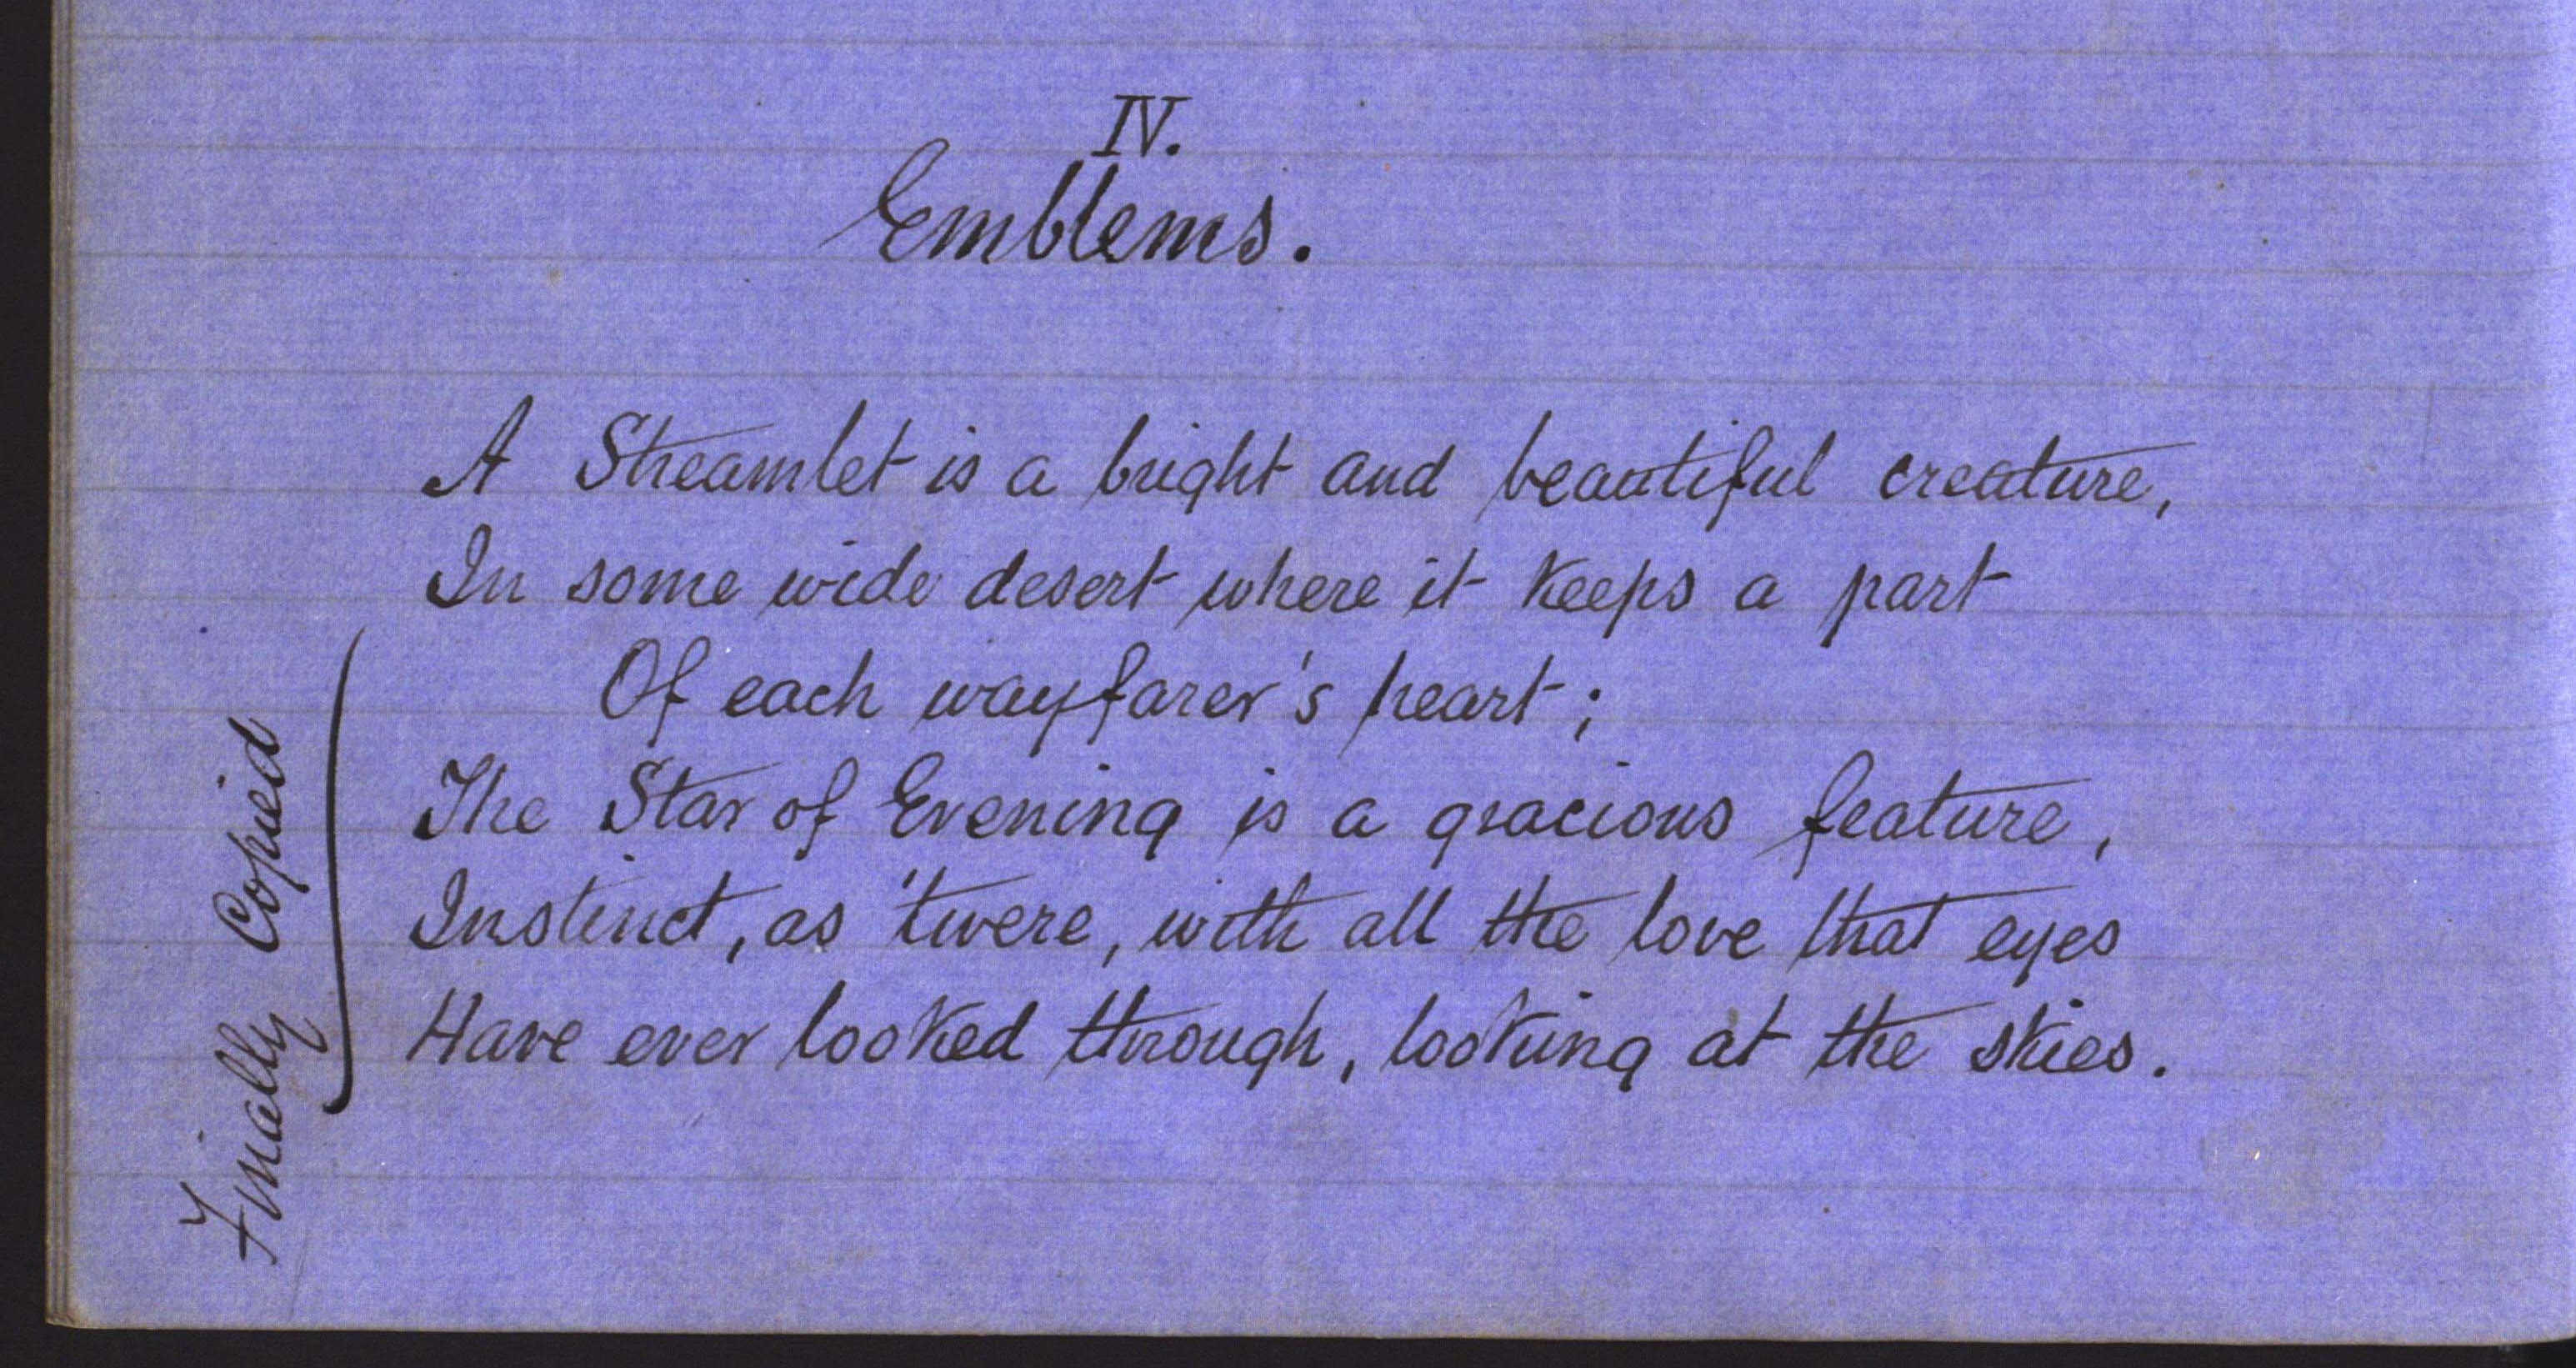 IV.
Emblems.
A Streamlet is a bright and beautiful creature,
In some wide desert where it keeps a part
Of each wayfarer's heart;
The Star of Evening is a gracious feature,
Instinct, as 'twere, with all the love that eyes
Have ever looked through, looking at the skies.
Finally Copied